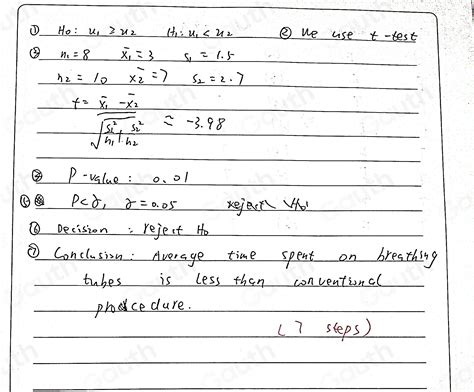 ① H₀: u₁ ≥ u₂ H₁: u₁ < u₂ ② we use t-test
③ n₁ = 8 x̄₁ = 3 s₁ = 1.5
n₂ = 10 x̄₂ = 7 s₂ = 2.7
t = (x̄₁ - x̄₂) / √(s₁²/n₁ + s₂²/n₂) = -3.98
④ P-value: 0.01
⑤ P<α, α = 0.05 reject H₀
⑥ Decision: reject H₀
⑦ Conclusion: Average time spent on breathing
tubes is less than conventional
procedure.
(7 steps)